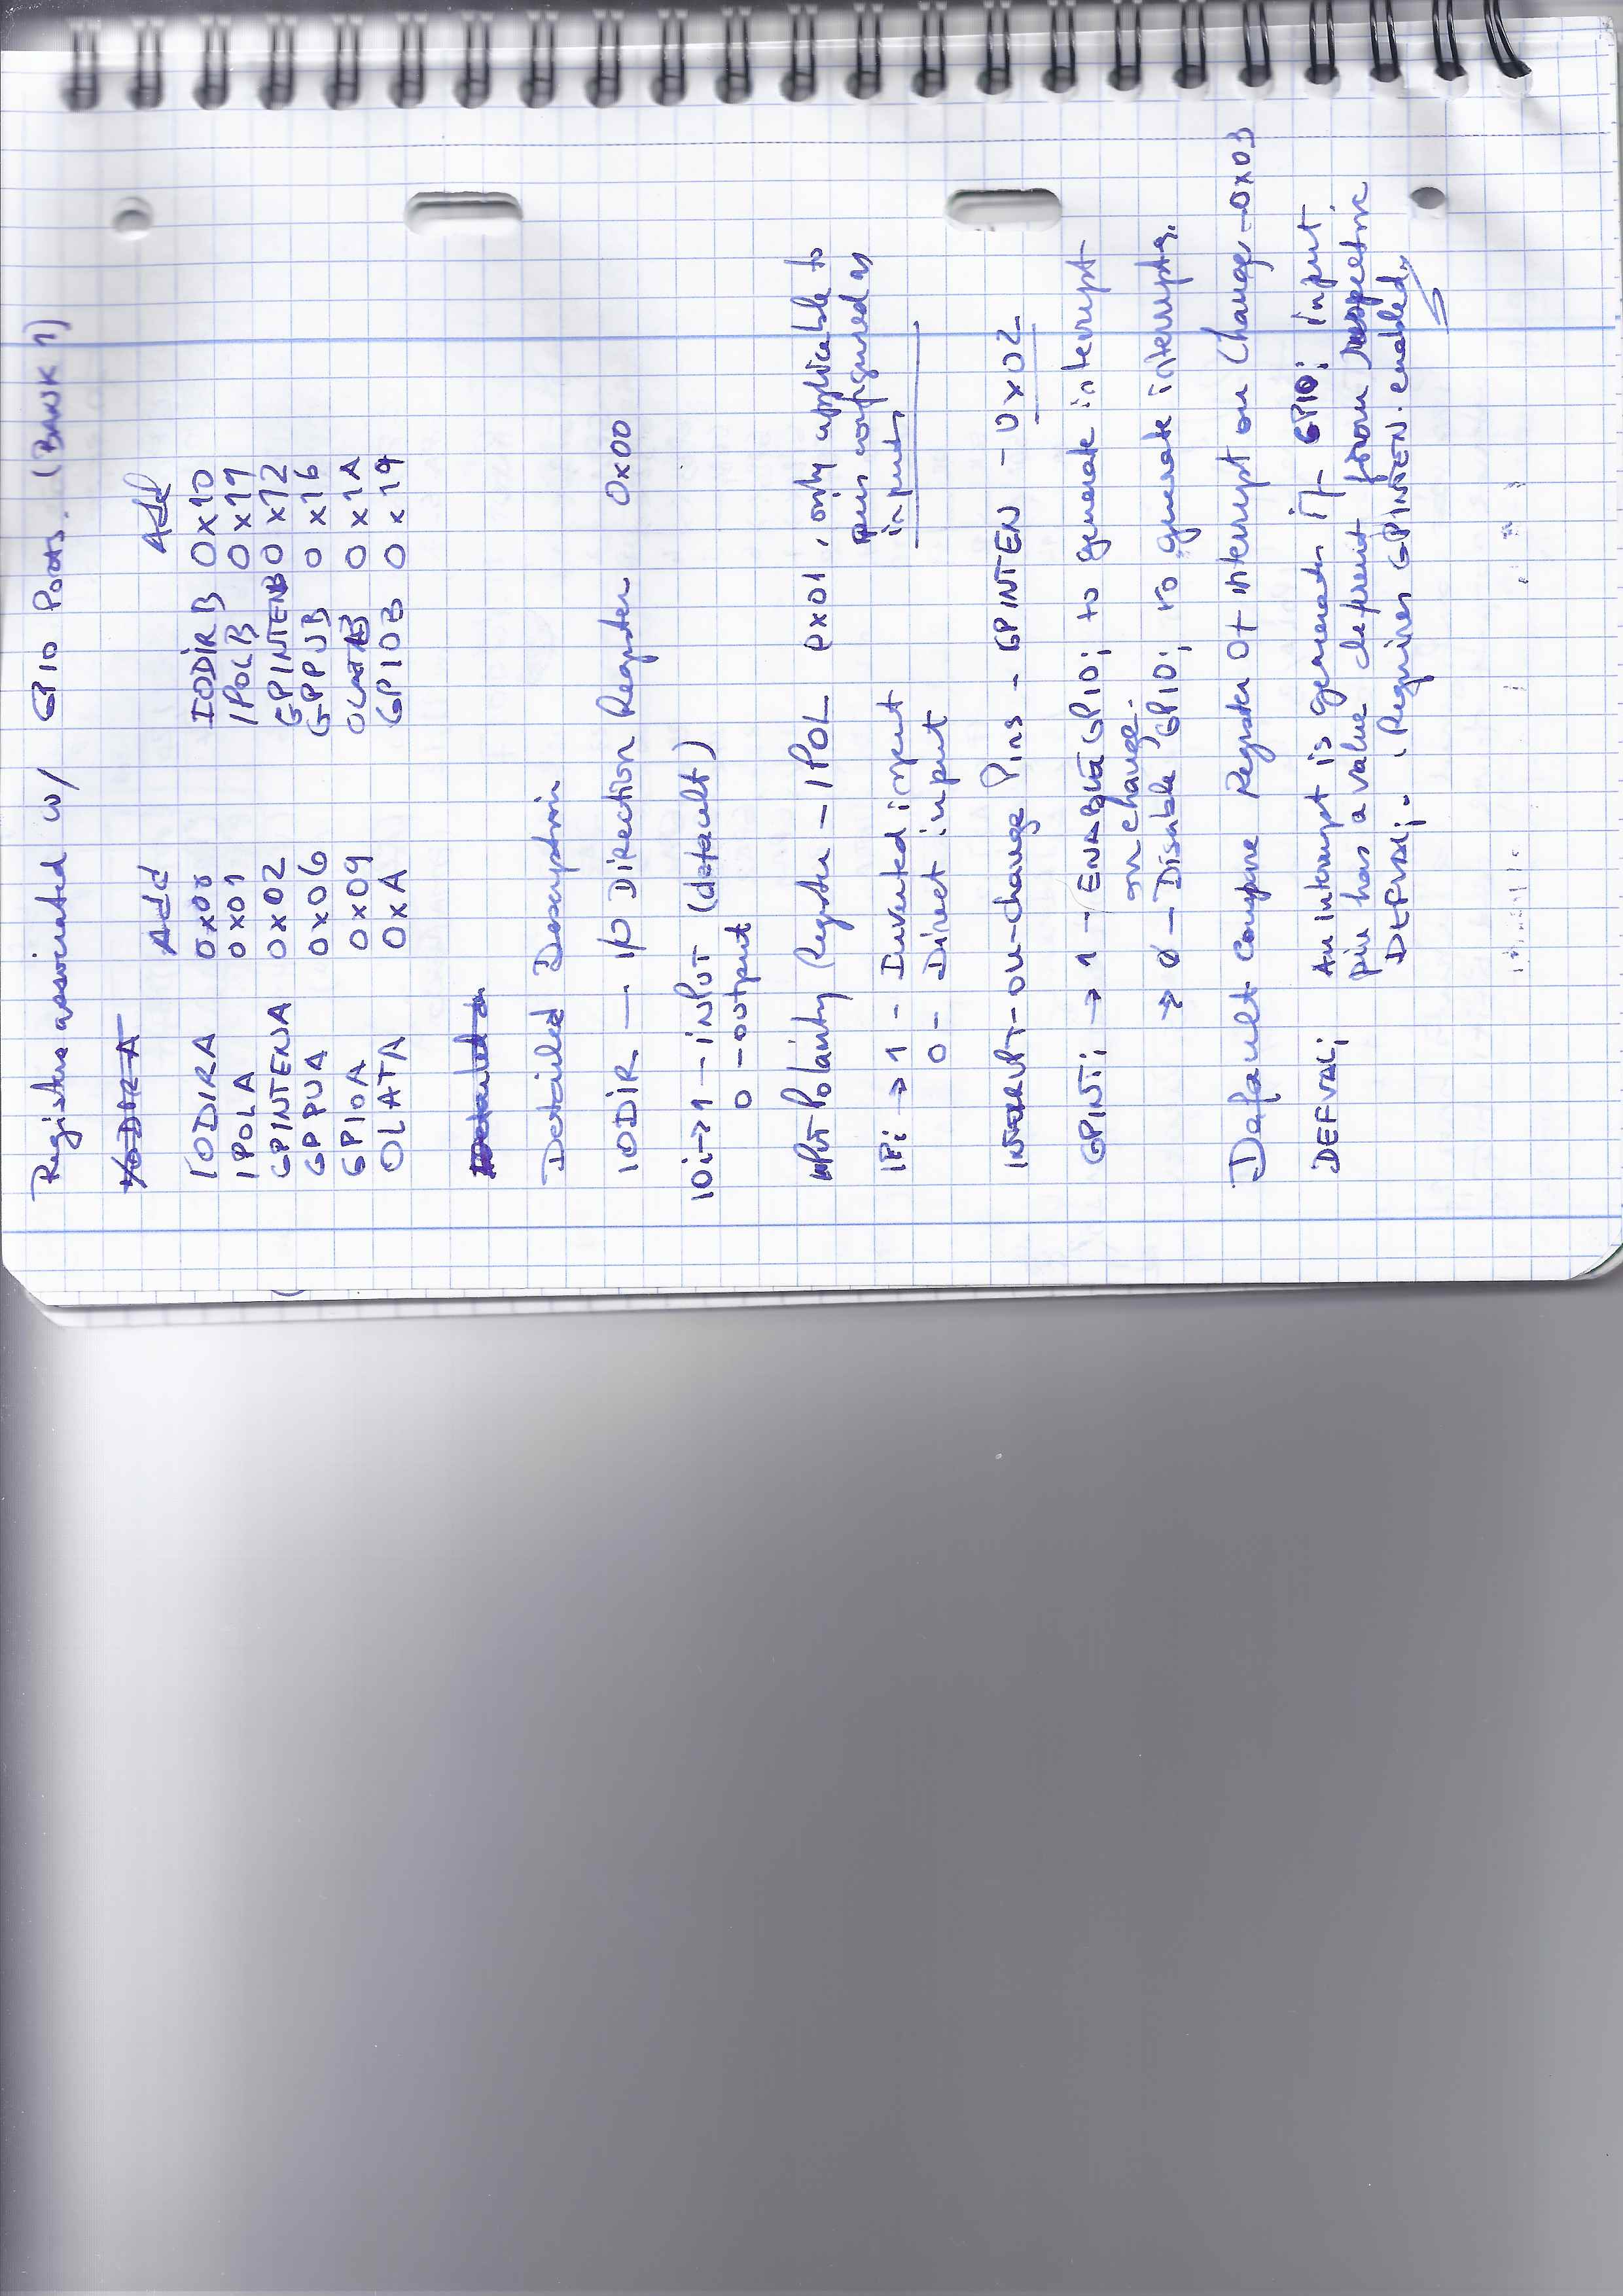 Registers associated w/ GPIO Ports. (BANK 1)
I/ODIR A
Add Add
IODIRA 0x00 IODIR B 0x10
IPOLA 0x01 IPOLB 0x11
GPINTENA 0x02 GPINTENB 0x12
GPPUA 0x06 GPPUB 0x16
GPIOA 0x09 OLATB 0x1A
OLATA 0xA GPIOB 0x19
Detailed
Detailed Description
IODIR — I/O Direction Register 0x00
IOi → 1 – input (default)
0 – output
Input Polarity Register – IPOL 0x01, only applicable to
pins configured as
inputs
IPi → 1 – Inverted input
0 – Direct input
INTERRUPT-on-change Pins - GPINTEN - 0x02
GPINTi → 1 – ENABLE GPIOi to generate interrupt
on change.
→ 0 – Disable GPIOi to generate interrupts.
Default Compare Register Of interrupt on Change – 0x03
DEFVALi An interrupt is generated if GPIOi input
pin has a value different from respective
DEFVALi. Requires GPINTEN. enabled.